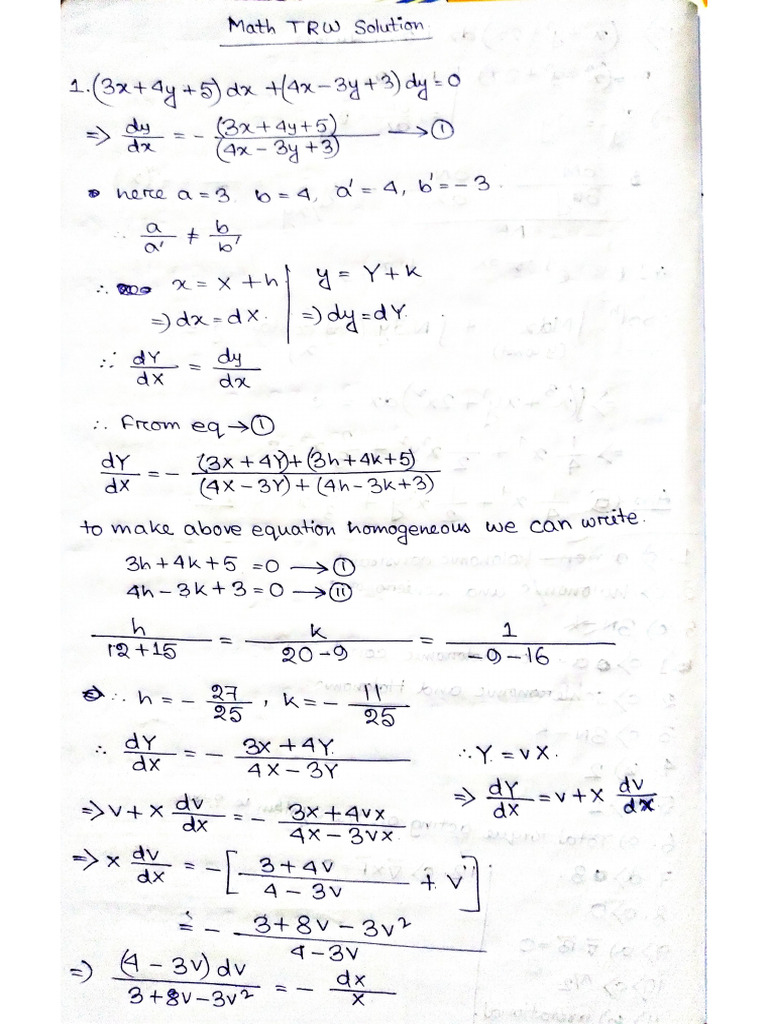 Math TRW Solution
1. (3x+4y+5) dx + (4x-3y+3) dy = 0
=> dy/dx = - (3x+4y+5)/(4x-3y+3) → ①
here a=3 b=4, a'=4, b'=-3.
∴ a/a' ≠ b/b'
∴ x = X+h | y = Y+k
=> dx = dX. | => dy = dY.
∴ dY/dX = dy/dx
∴ From eq → ①
dY/dX = - (3X+4Y)+(3h+4k+5)/(4X-3Y)+(4h-3k+3)
to make above equation homogeneous we can write.
3h+4k+5 = 0 → ①
4h-3k+3 = 0 → ⑪
h/12+15 = k/20-9 = 1/-9-16
∴ h = - 27/25, k = - 11/25
∴ dY/dX = - 3X+4Y/4X-3Y ∴ Y = vX.
=> v+X dv/dX = - 3X+4vX/4X-3vX => dY/dX = v+X dv/dX
=> X dv/dX = - [3+4v/4-3v + v]
= - 3+8v-3v²/4-3v
=> (4-3v) dv/3+8v-3v² = - dX/X